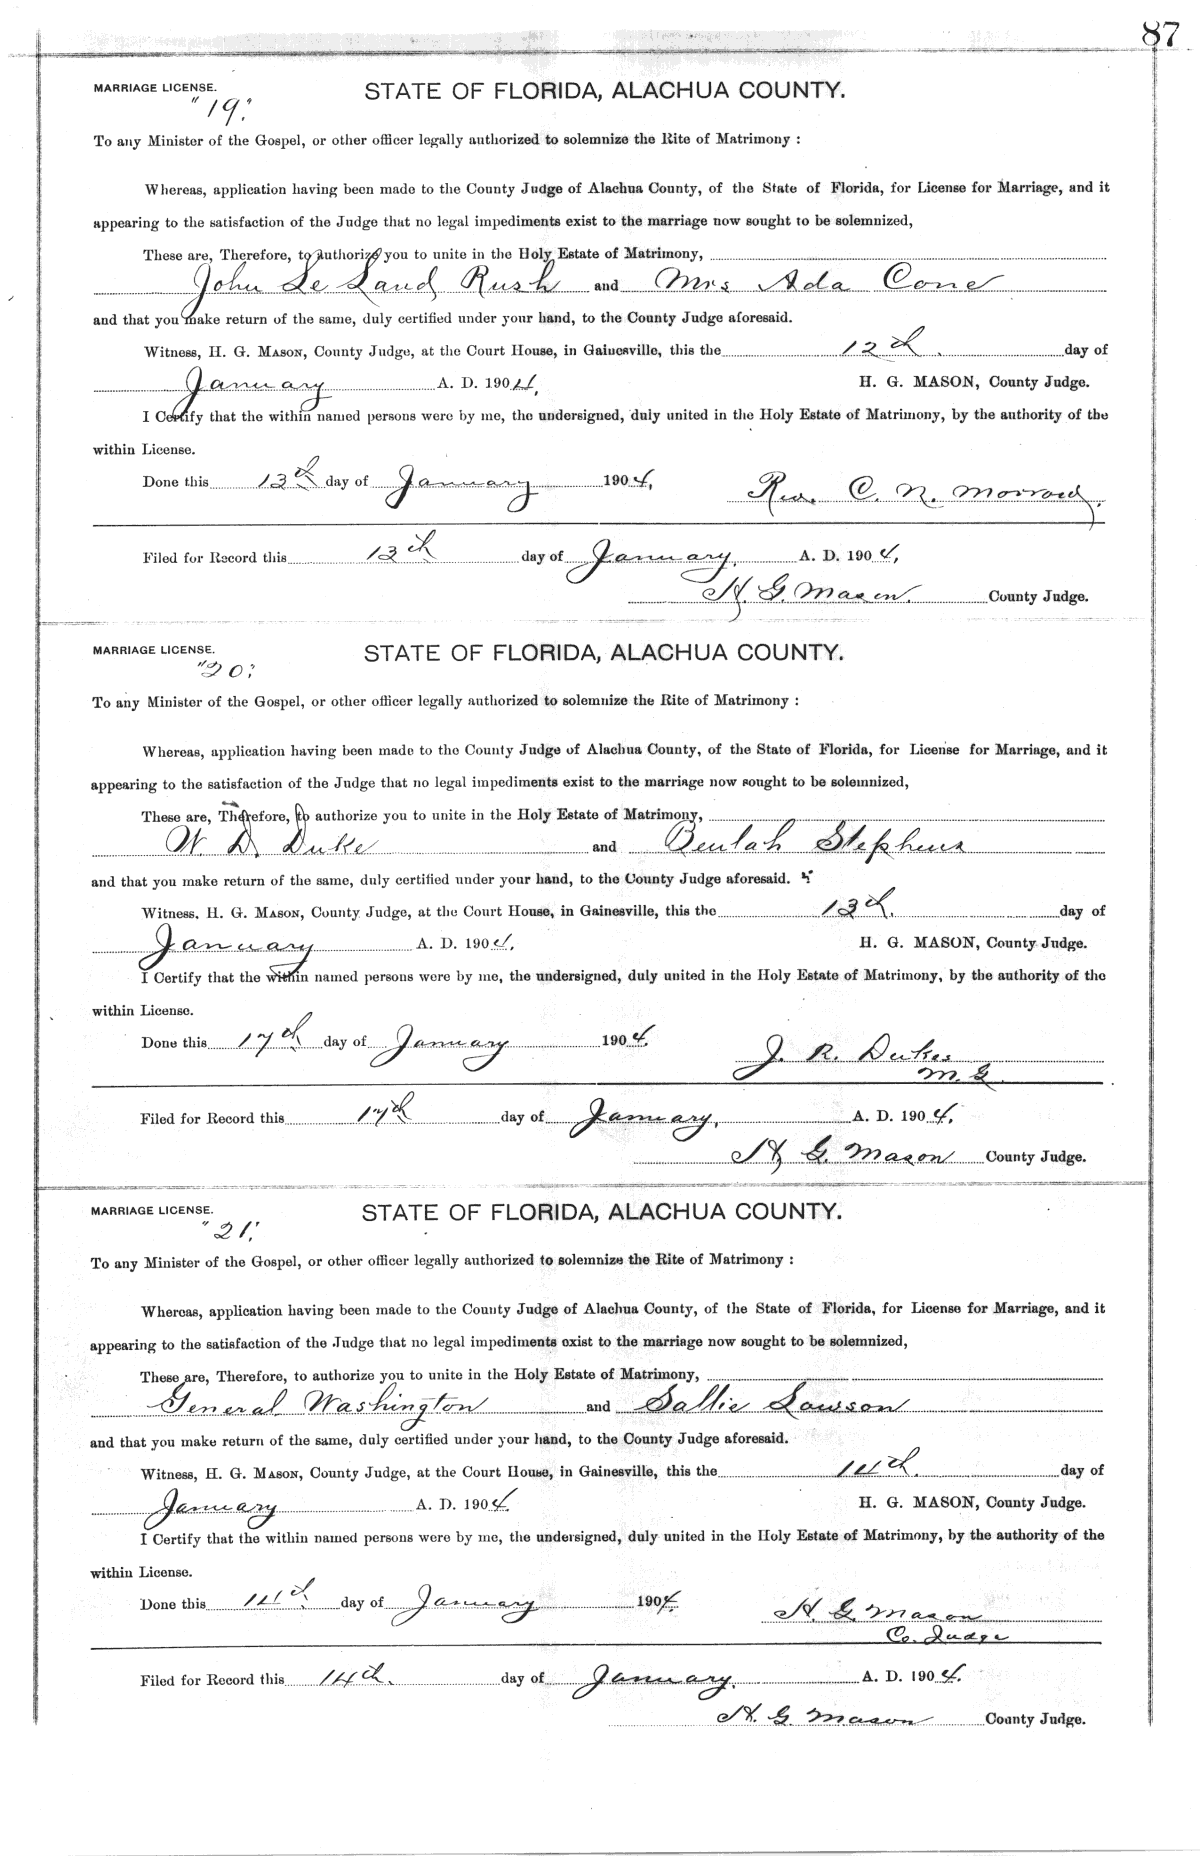 87
MARRIAGE LICENSE. STATE OF FLORIDA, ALACHUA COUNTY.
"19."
To any Minister of the Gospel, or other officer legally authorized to solemnize the Rite of Matrimony :
Whereas, application having been made to the County Judge of Alachua County, of the State of Florida, for License for Marriage, and it
appearing to the satisfaction of the Judge that no legal impediments exist to the marriage now sought to be solemnized,
These are, Therefore, to authorize you to unite in the Holy Estate of Matrimony,
John Le Land Rush and Mrs Ada Cone
and that you make return of the same, duly certified under your hand, to the County Judge aforesaid.
Witness, H. G. MASON, County Judge, at the Court House, in Gainesville, this the 12th. day of
January A. D. 1904, H. G. MASON, County Judge.
I Certify that the within named persons were by me, the undersigned, duly united in the Holy Estate of Matrimony, by the authority of the
within License.
Done this 13th day of January 1904, Rev. C. N.
Filed for Record this 13th day of January, A. D. 1904,
H. G. Mason. County Judge.
MARRIAGE LICENSE. STATE OF FLORIDA, ALACHUA COUNTY.
"20."
To any Minister of the Gospel, or other officer legally authorized to solemnize the Rite of Matrimony :
Whereas, application having been made to the County Judge of Alachua County, of the State of Florida, for License for Marriage, and it
appearing to the satisfaction of the Judge that no legal impediments exist to the marriage now sought to be solemnized,
These are, Therefore, to authorize you to unite in the Holy Estate of Matrimony,
W. D. Duke and Beulah Stephens
and that you make return of the same, duly certified under your hand, to the County Judge aforesaid.
Witness, H. G. MASON, County Judge, at the Court House, in Gainesville, this the 13th. day of
January A. D. 1904, H. G. MASON, County Judge.
I Certify that the within named persons were by me, the undersigned, duly united in the Holy Estate of Matrimony, by the authority of the
within License.
Done this 17th day of January 1904. J. R. Dukes
M. G.
Filed for Record this 17th day of January, A. D. 1904.
H. G. Mason County Judge.
MARRIAGE LICENSE. STATE OF FLORIDA, ALACHUA COUNTY.
"21."
To any Minister of the Gospel, or other officer legally authorized to solemnize the Rite of Matrimony :
Whereas, application having been made to the County Judge of Alachua County, of the State of Florida, for License for Marriage, and it
appearing to the satisfaction of the Judge that no legal impediments exist to the marriage now sought to be solemnized,
These are, Therefore, to authorize you to unite in the Holy Estate of Matrimony,
General Washington and Sallie Lawson
and that you make return of the same, duly certified under your hand, to the County Judge aforesaid.
Witness, H. G. MASON, County Judge, at the Court House, in Gainesville, this the 14th. day of
January A. D. 1904. H. G. MASON, County Judge.
I Certify that the within named persons were by me, the undersigned, duly united in the Holy Estate of Matrimony, by the authority of the
within License.
Done this 14th day of January 1904. H. G. Mason
Co. Judge
Filed for Record this 14th. day of January. A. D. 1904.
H. G. Mason County Judge.